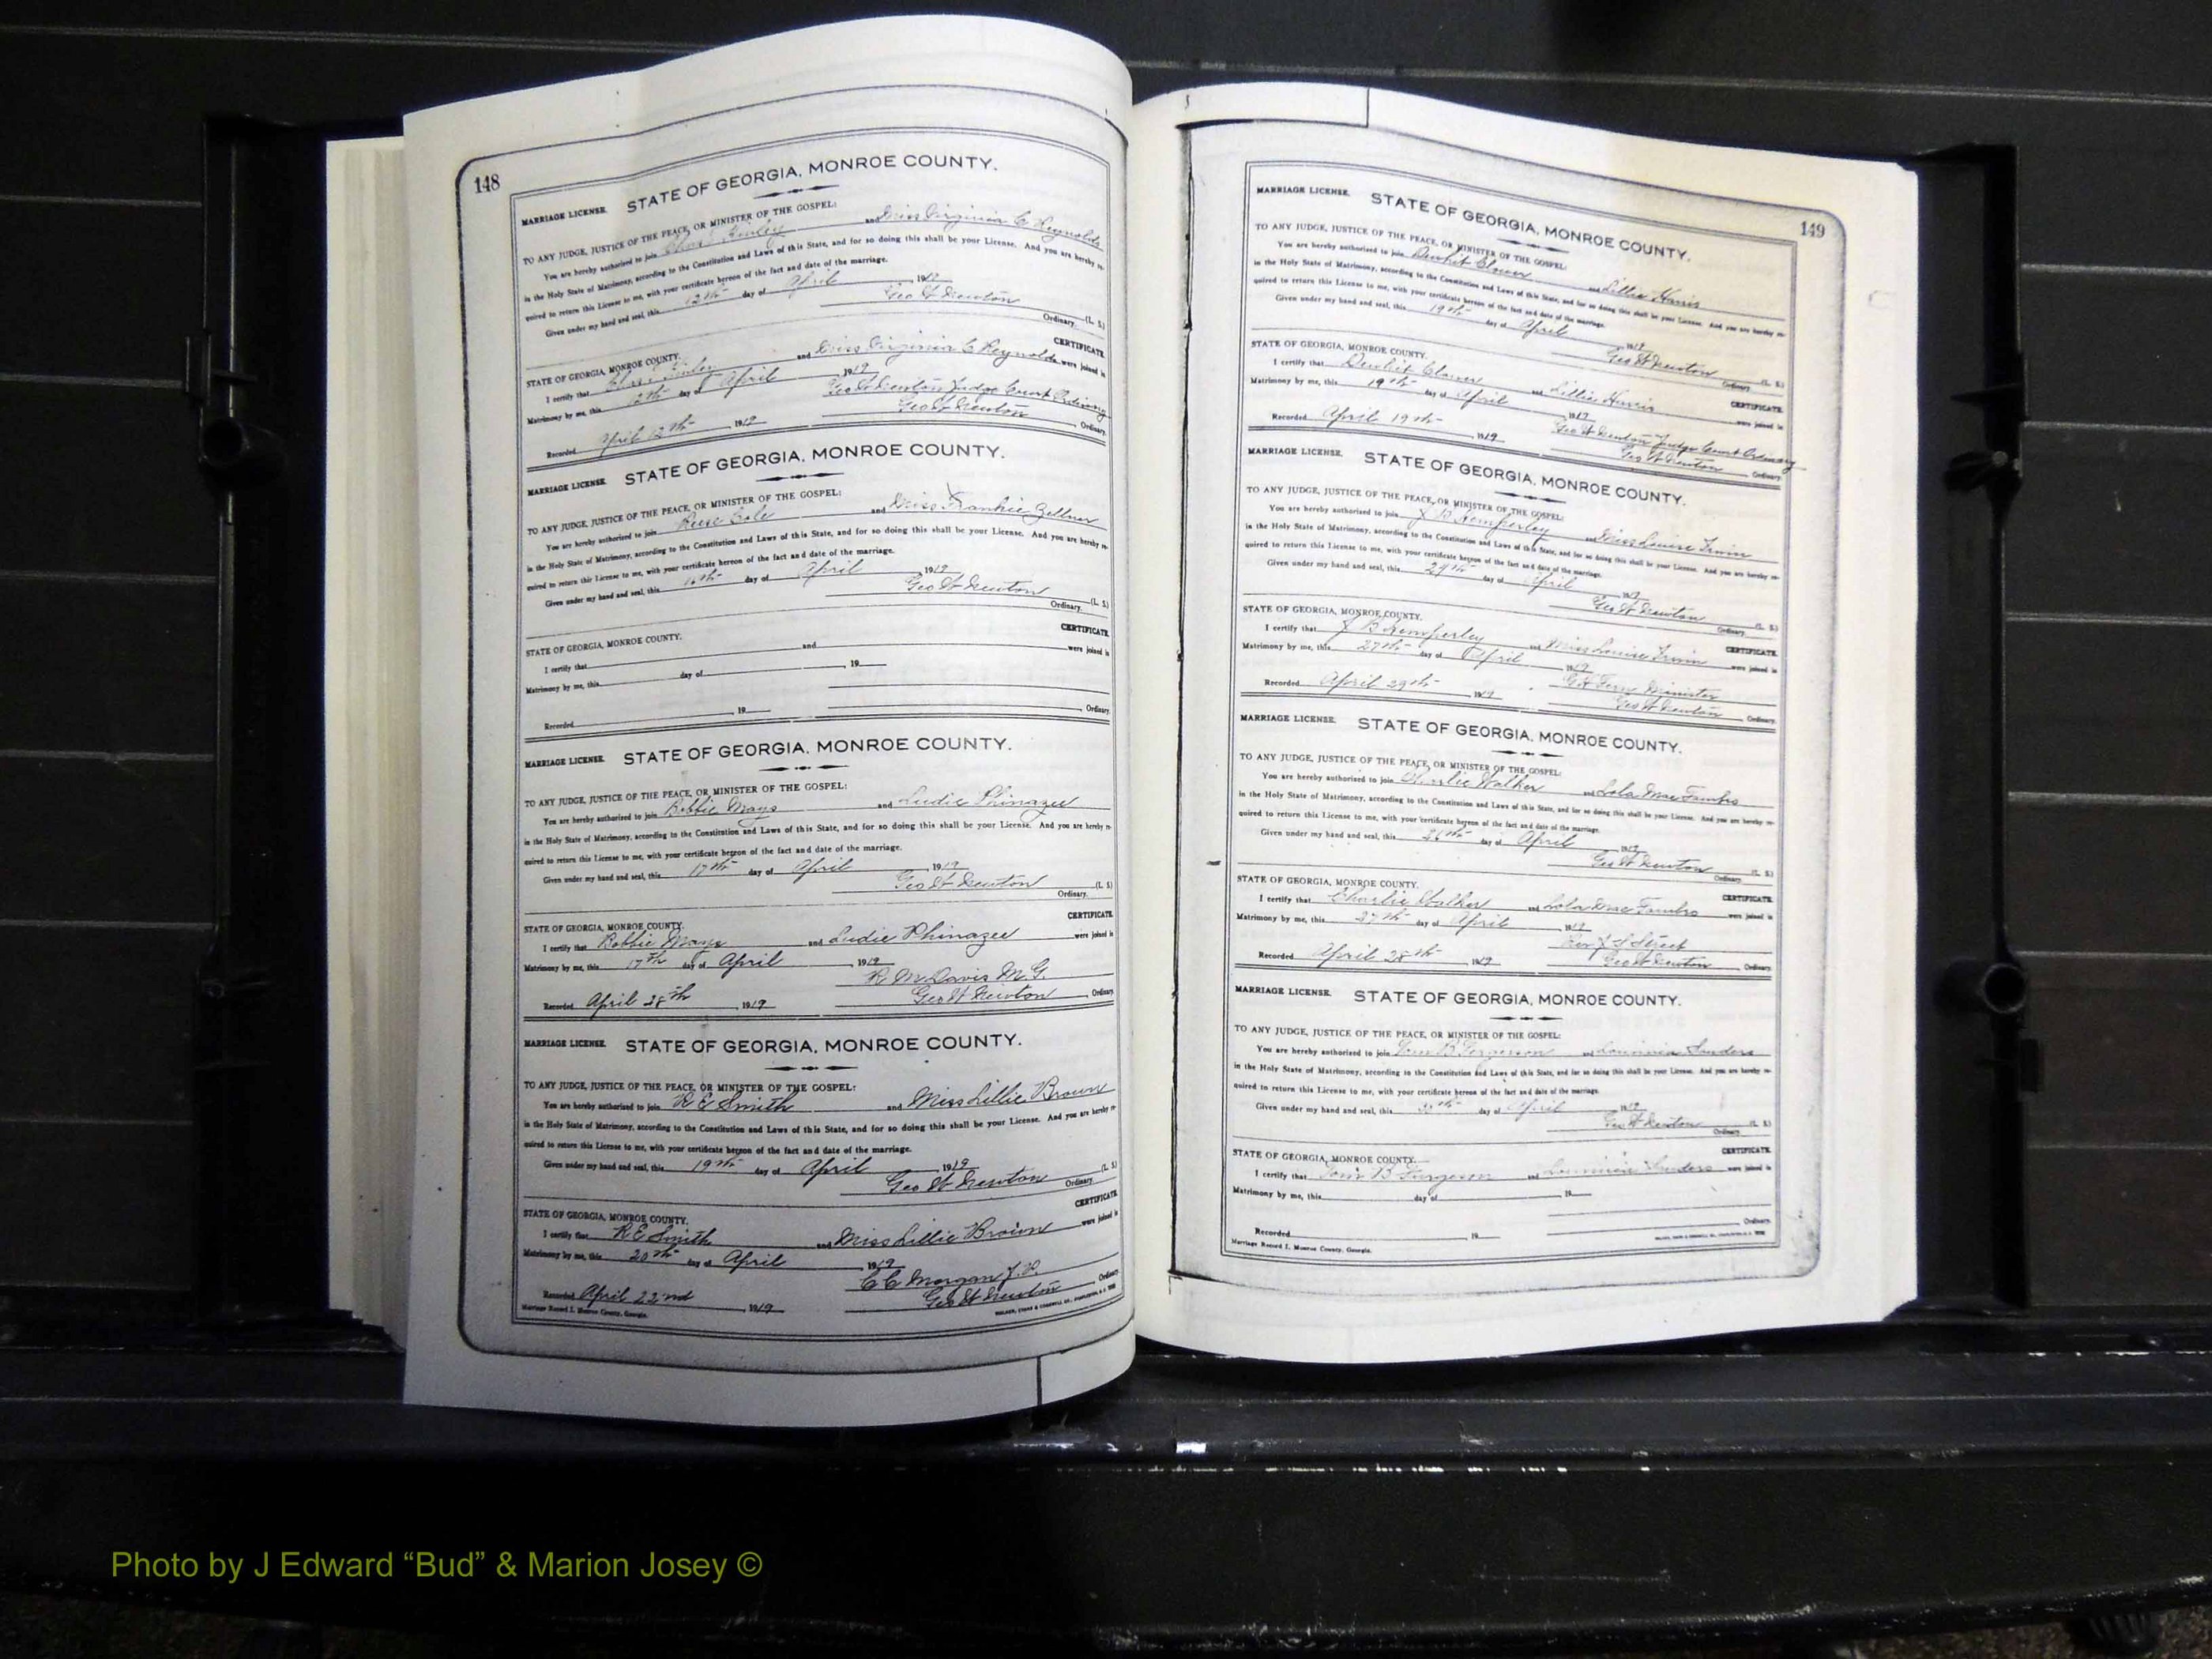 148
MARRIAGE LICENSE. STATE OF GEORGIA, MONROE COUNTY.
TO ANY JUDGE, JUSTICE OF THE PEACE, OR MINISTER OF THE GOSPEL:
You are hereby authorized to join and Miss Virginia C Reynolds
in the Holy State of Matrimony, according to the Constitution and Laws of this State, and for so doing this shall be your License. And you are hereby re-
quired to return this License to me, with your certificate hereon of the fact and date of the marriage.
Given under my hand and seal, this 12th day of April 1919
Geo W Newton (L. S.)
Ordinary.
STATE OF GEORGIA, MONROE COUNTY. CERTIFICATE
I certify that and Miss Virginia C Reynolds were joined in
Matrimony by me, this 12th day of April 1919
Geo W Newton Judge Court Ordinary
Recorded April 12th 1919 Geo W Newton Ordinary.
MARRIAGE LICENSE. STATE OF GEORGIA, MONROE COUNTY.
TO ANY JUDGE, JUSTICE OF THE PEACE, OR MINISTER OF THE GOSPEL:
You are hereby authorized to join Reese Cole and Miss Frankie Zellner
in the Holy State of Matrimony, according to the Constitution and Laws of this State, and for so doing this shall be your License. And you are hereby re-
quired to return this License to me, with your certificate hereon of the fact and date of the marriage.
Given under my hand and seal, this 16th day of April 1919
Geo W Newton (L. S.)
Ordinary.
STATE OF GEORGIA, MONROE COUNTY. CERTIFICATE
I certify that and were joined in
Matrimony by me, this day of 19
Recorded 19 Ordinary.
MARRIAGE LICENSE. STATE OF GEORGIA, MONROE COUNTY.
TO ANY JUDGE, JUSTICE OF THE PEACE, OR MINISTER OF THE GOSPEL:
You are hereby authorized to join Bobbie Mays and Ludie Phinazee
in the Holy State of Matrimony, according to the Constitution and Laws of this State, and for so doing this shall be your License. And you are hereby re-
quired to return this License to me, with your certificate hereon of the fact and date of the marriage.
Given under my hand and seal, this 17th day of April 1919
Geo W Newton (L. S.)
Ordinary.
STATE OF GEORGIA, MONROE COUNTY. CERTIFICATE
I certify that Bobbie Mays and Ludie Phinazee were joined in
Matrimony by me, this 17th day of April 1919
R M Davis M. G.
Recorded April 28th 1919 Geo W Newton Ordinary.
MARRIAGE LICENSE. STATE OF GEORGIA, MONROE COUNTY.
TO ANY JUDGE, JUSTICE OF THE PEACE, OR MINISTER OF THE GOSPEL:
You are hereby authorized to join R E Smith and Miss Lillie Brown
in the Holy State of Matrimony, according to the Constitution and Laws of this State, and for so doing this shall be your License. And you are hereby re-
quired to return this License to me, with your certificate hereon of the fact and date of the marriage.
Given under my hand and seal, this 19th day of April 1919
Geo W Newton (L. S.)
Ordinary.
STATE OF GEORGIA, MONROE COUNTY. CERTIFICATE
I certify that R E Smith and Miss Lillie Brown were joined in
Matrimony by me, this 20th day of April 1919
C C Morgan J. P.
Recorded April 22nd 1919 Geo W Newton Ordinary.
Marriage Record I, Monroe County, Georgia.
149
MARRIAGE LICENSE. STATE OF GEORGIA, MONROE COUNTY.
TO ANY JUDGE, JUSTICE OF THE PEACE, OR MINISTER OF THE GOSPEL:
You are hereby authorized to join Clower and Lillie Harris
in the Holy State of Matrimony, according to the Constitution and Laws of this State, and for so doing this shall be your License. And you are hereby re-
quired to return this License to me, with your certificate hereon of the fact and date of the marriage.
Given under my hand and seal, this 19th day of April 1919
Geo W Newton (L. S.)
Ordinary.
STATE OF GEORGIA, MONROE COUNTY. CERTIFICATE
I certify that Clower and Lillie Harris were joined in
Matrimony by me, this 19th day of April 1919
Geo W Newton Judge Court Ordinary
Recorded April 19th 1919 Geo W Newton Ordinary.
MARRIAGE LICENSE. STATE OF GEORGIA, MONROE COUNTY.
TO ANY JUDGE, JUSTICE OF THE PEACE, OR MINISTER OF THE GOSPEL:
You are hereby authorized to join J B Kemperley and Miss Louise Irvin
in the Holy State of Matrimony, according to the Constitution and Laws of this State, and for so doing this shall be your License. And you are hereby re-
quired to return this License to me, with your certificate hereon of the fact and date of the marriage.
Given under my hand and seal, this day of April 1919
Geo W Newton (L. S.)
Ordinary.
STATE OF GEORGIA, MONROE COUNTY. CERTIFICATE
I certify that J B Kemperley and Miss Louise Irvin were joined in
Matrimony by me, this 27th day of April 1919
Minister
Recorded April 29th 1919 Geo W Newton Ordinary.
MARRIAGE LICENSE. STATE OF GEORGIA, MONROE COUNTY.
TO ANY JUDGE, JUSTICE OF THE PEACE, OR MINISTER OF THE GOSPEL:
You are hereby authorized to join Charlie Walker and Lola Mae Fambro
in the Holy State of Matrimony, according to the Constitution and Laws of this State, and for so doing this shall be your License. And you are hereby re-
quired to return this License to me, with your certificate hereon of the fact and date of the marriage.
Given under my hand and seal, this 26th day of April 1919
Geo W Newton (L. S.)
Ordinary.
STATE OF GEORGIA, MONROE COUNTY. CERTIFICATE
I certify that Charlie Walker and Lola Mae Fambro were joined in
Matrimony by me, this 27th day of April 1919
Rev Street
Recorded April 28th 1919 Geo W Newton Ordinary.
MARRIAGE LICENSE. STATE OF GEORGIA, MONROE COUNTY.
TO ANY JUDGE, JUSTICE OF THE PEACE, OR MINISTER OF THE GOSPEL:
You are hereby authorized to join Tom B and Sanders
in the Holy State of Matrimony, according to the Constitution and Laws of this State, and for so doing this shall be your License. And you are hereby re-
quired to return this License to me, with your certificate hereon of the fact and date of the marriage.
Given under my hand and seal, this day of April 1919
Geo W Newton (L. S.)
Ordinary.
STATE OF GEORGIA, MONROE COUNTY. CERTIFICATE
I certify that Tom B and Sanders were joined in
Matrimony by me, this day of 19
Ordinary.
Recorded 19
Marriage Record I, Monroe County, Georgia.
Photo by J Edward “Bud” & Marion Josey ©